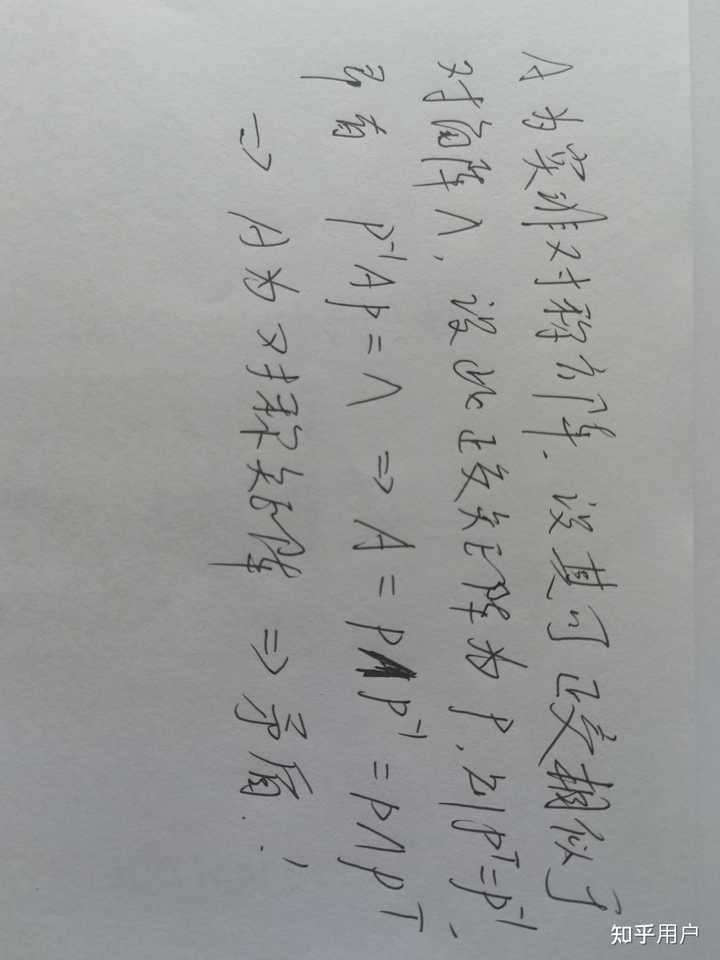 A为实非对称方阵.设其可正交相似于
对角阵Λ,设此正交矩阵为P,则P^T=P^-1,
即有 P^-1AP=Λ ⇒ A=PΛP^-1=PΛP^T
⇒ A为对称矩阵 ⇒ 矛盾.!
知乎用户